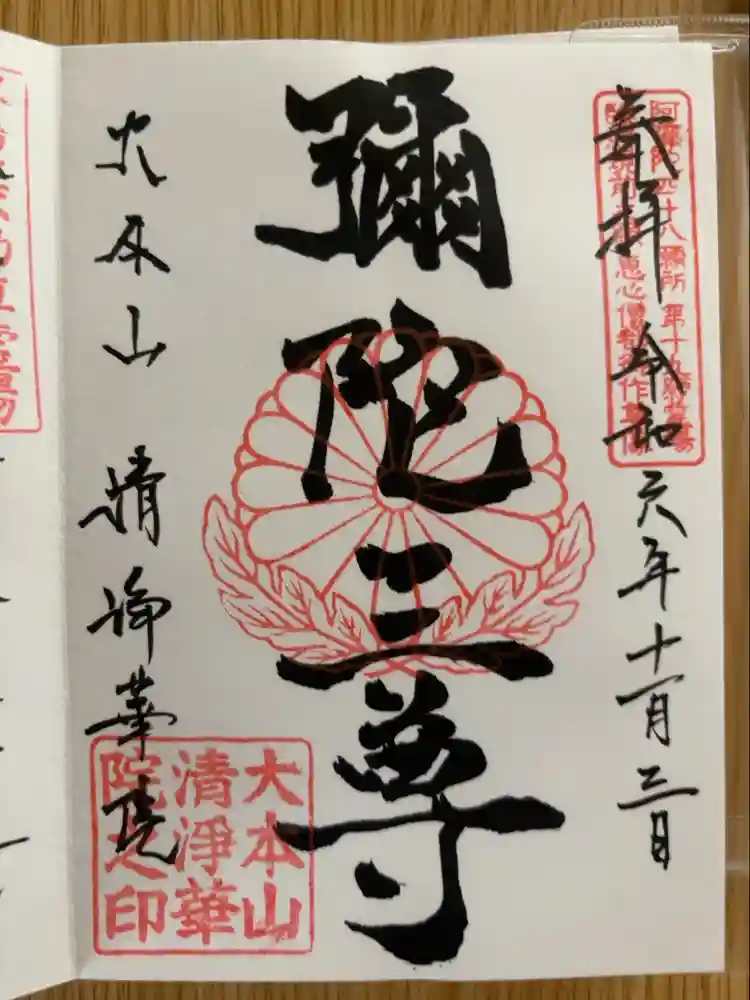 奉拝 令和六年十一月三日
阿彌陀四十八願所 第十九
恵心僧都作
彌陀三尊
大本山 清浄華院
大本山
清淨華
院之印